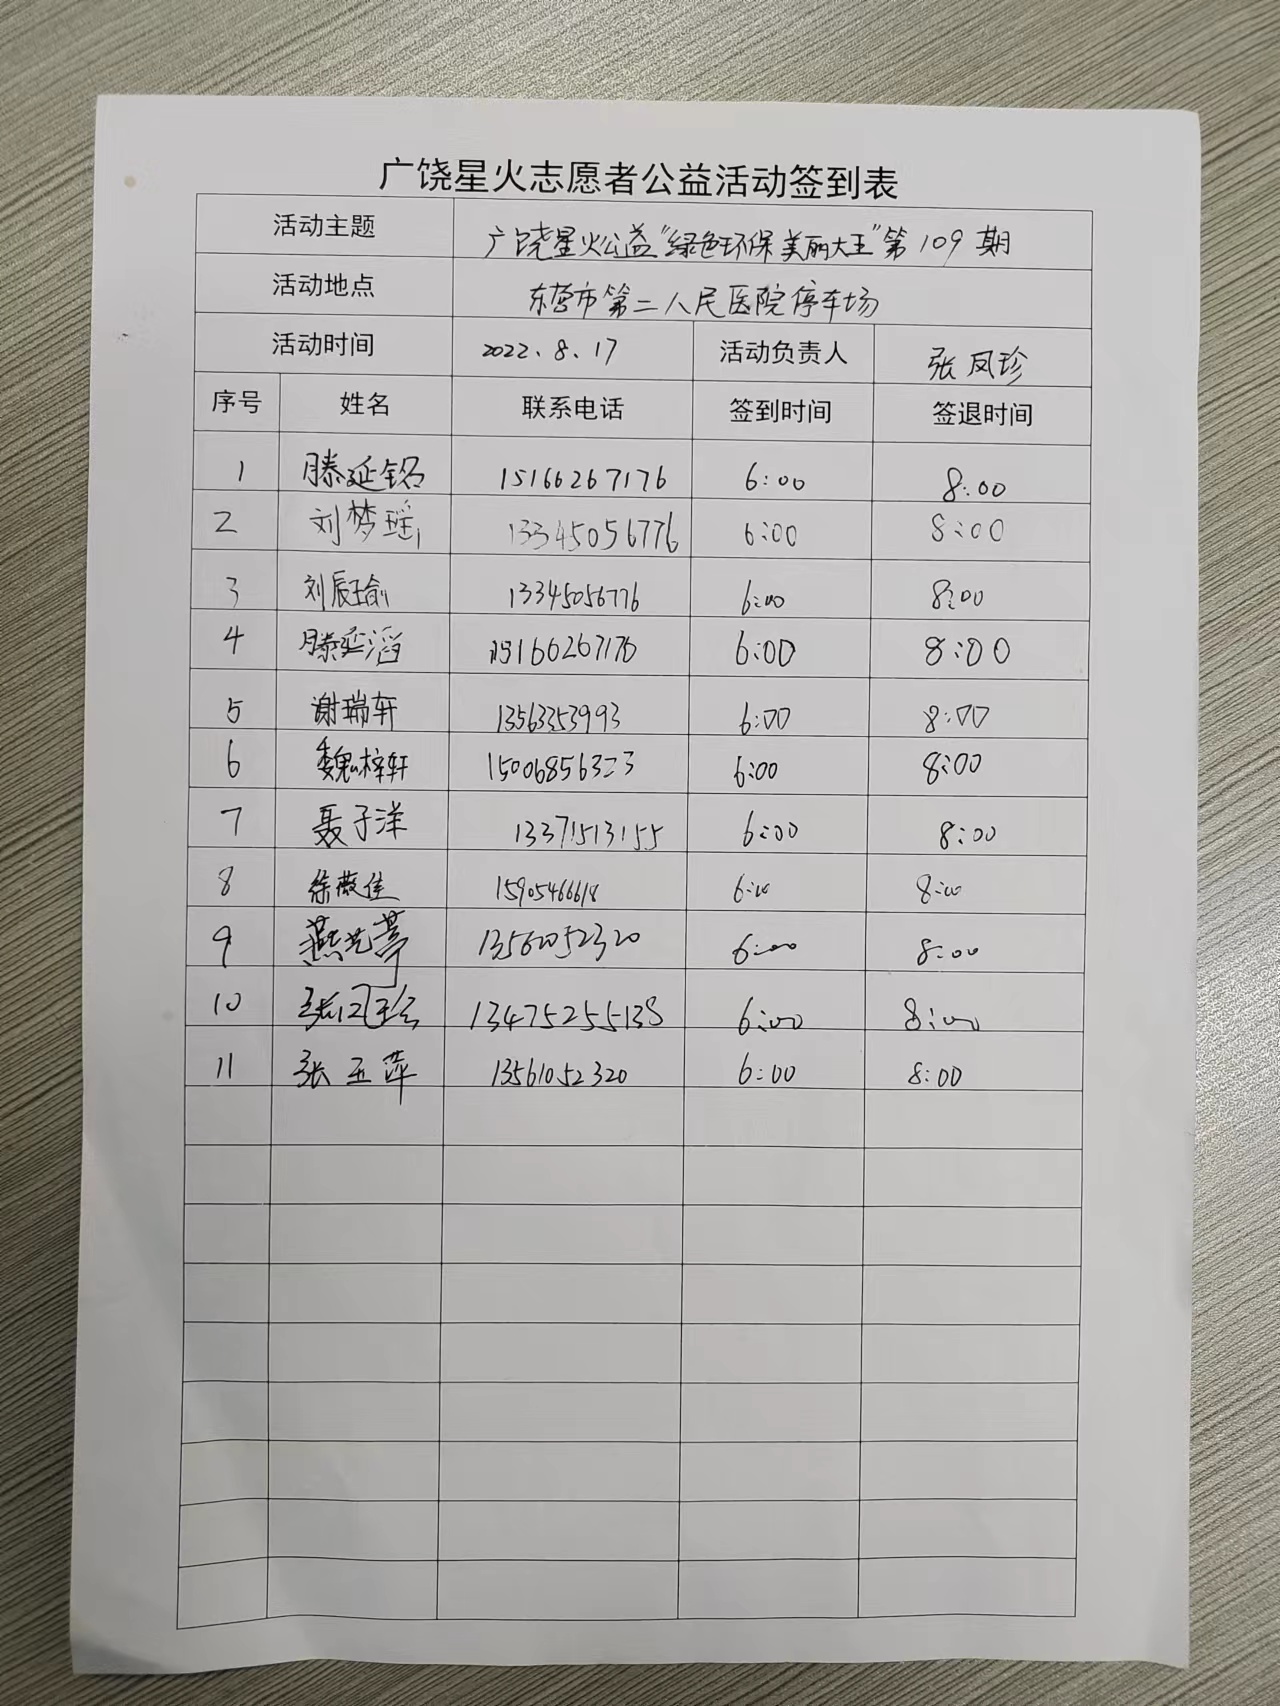 广饶星火志愿者公益活动签到表
活动主题 广饶星火公益“绿色环保美丽大王”第109期
活动地点 东营市第二人民医院停车场
活动时间 2022.8.17 活动负责人 张凤珍
序号 姓名 联系电话 签到时间 签退时间
1 滕延铭 15166267176 6:00 8:00
2 刘梦瑶 13345056776 6:00 8:00
3 刘辰瑜 13345056776 6:00 8:00
4 滕延滔 15166267176 6:00 8:00
5 谢瑞轩 13563353993 6:00 8:00
6 魏梓轩 15006856323 6:00 8:00
7 聂子洋 13371513155 6:00 8:00
8 徐薇佳 15905466618 6:00 8:00
9 13561052320 6:00 8:00
10 张凤珍 13475255138 6:00 8:00
11 张玉萍 13561052320 6:00 8:00